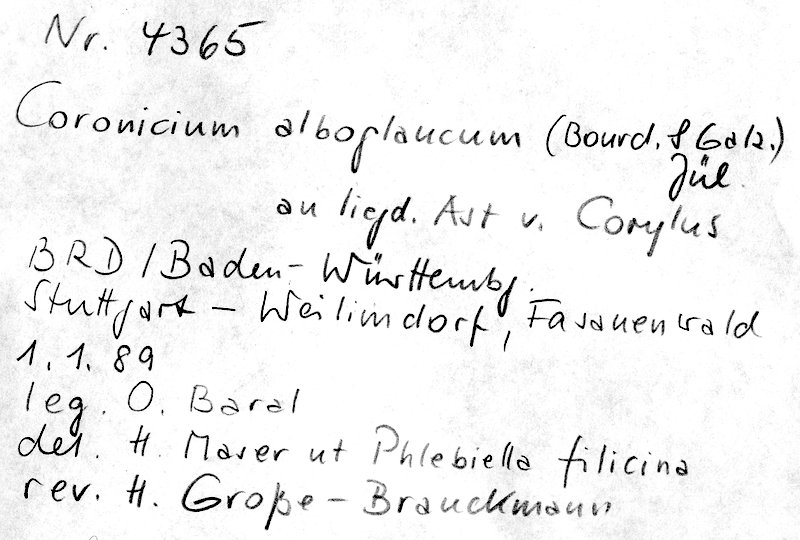 Nr. 4365
Coronicium alboglaucum (Bourd. & Galz.)
Jül.
an liegd. Ast v. Corylus
BRD / Baden-Württembg.
Stuttgart - Weilimdorf, Fasanenwald
1.1.89
leg. O. Baral
det. H. Maser ut Phlebiella filicina
rev. H. Große-Brauckmann